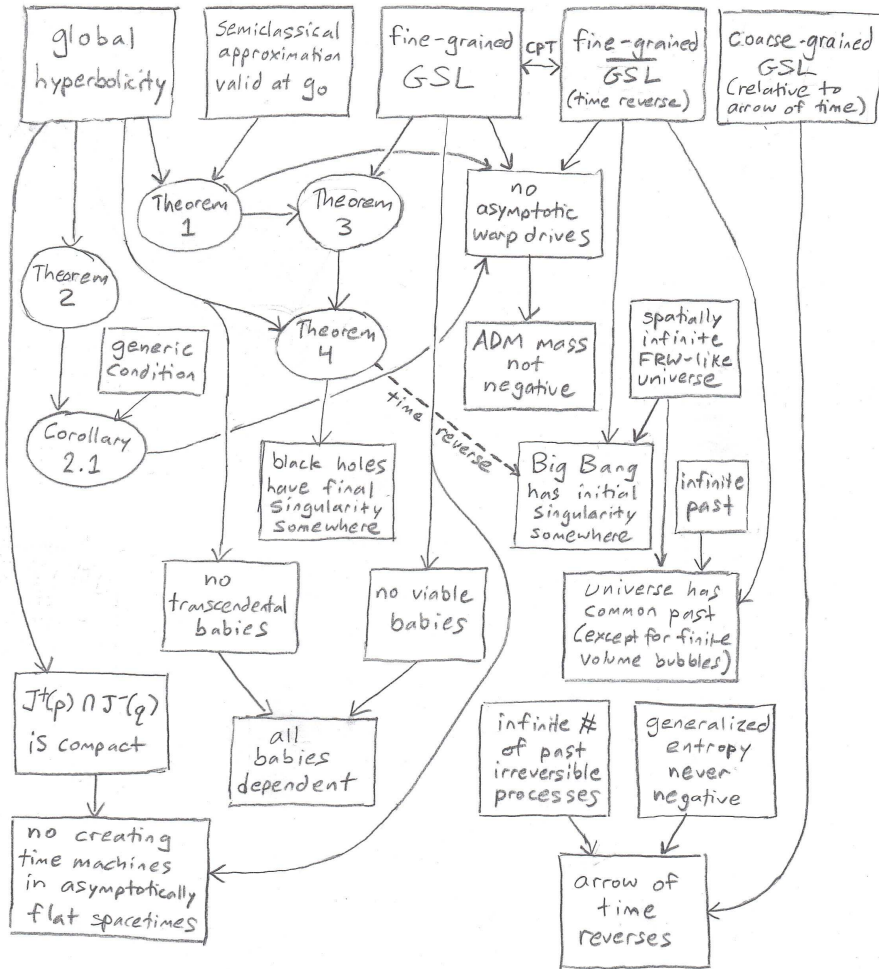 global
hyperbolicity
Semiclassical
approximation
valid at g₀
fine-grained
GSL
CPT
fine-grained
GSL
(time reverse)
Coarse-grained
GSL
(relative to
arrow of time)
Theorem
1
Theorem
3
no
asymptotic
warp drives
Theorem
2
Theorem
4
generic
Condition
ADM mass
not
negative
spatially
infinite
FRW-like
universe
time reverse
Corollary
2.1
black holes
have final
Singularity
Somewhere
Big Bang
has initial
Singularity
Somewhere
infinite
past
no
transcendental
babies
no viable
babies
Universe has
Common past
(except for finite
volume bubbles)
J⁺(p) ∩ J⁻(q)
is compact
all
babies
dependent
infinite #
of past
irreversible
processes
generalized
entropy
never
negative
no creating
time machines
in asymptotically
flat spacetimes
arrow of
time
reverses